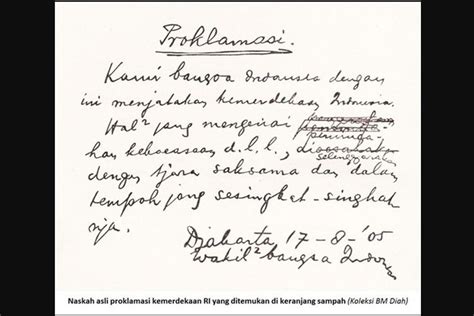 Proklamasi.
Kami bangsa Indonesia dengan
ini menjatakan kemerdekaan Indonesia.
Hal² jang mengenai
peminda-
han kekoeasaan d.l.l., dioesahakan
diselenggarakan
dengan tjara saksama dan dalam
tempoh jang sesingkat-singkat
nja.
Djakarta, 17-8-'05
Wakil² bangsa Indonesia
Naskah asli proklamasi kemerdekaan RI yang ditemukan di keranjang sampah (Koleksi BM Diah)